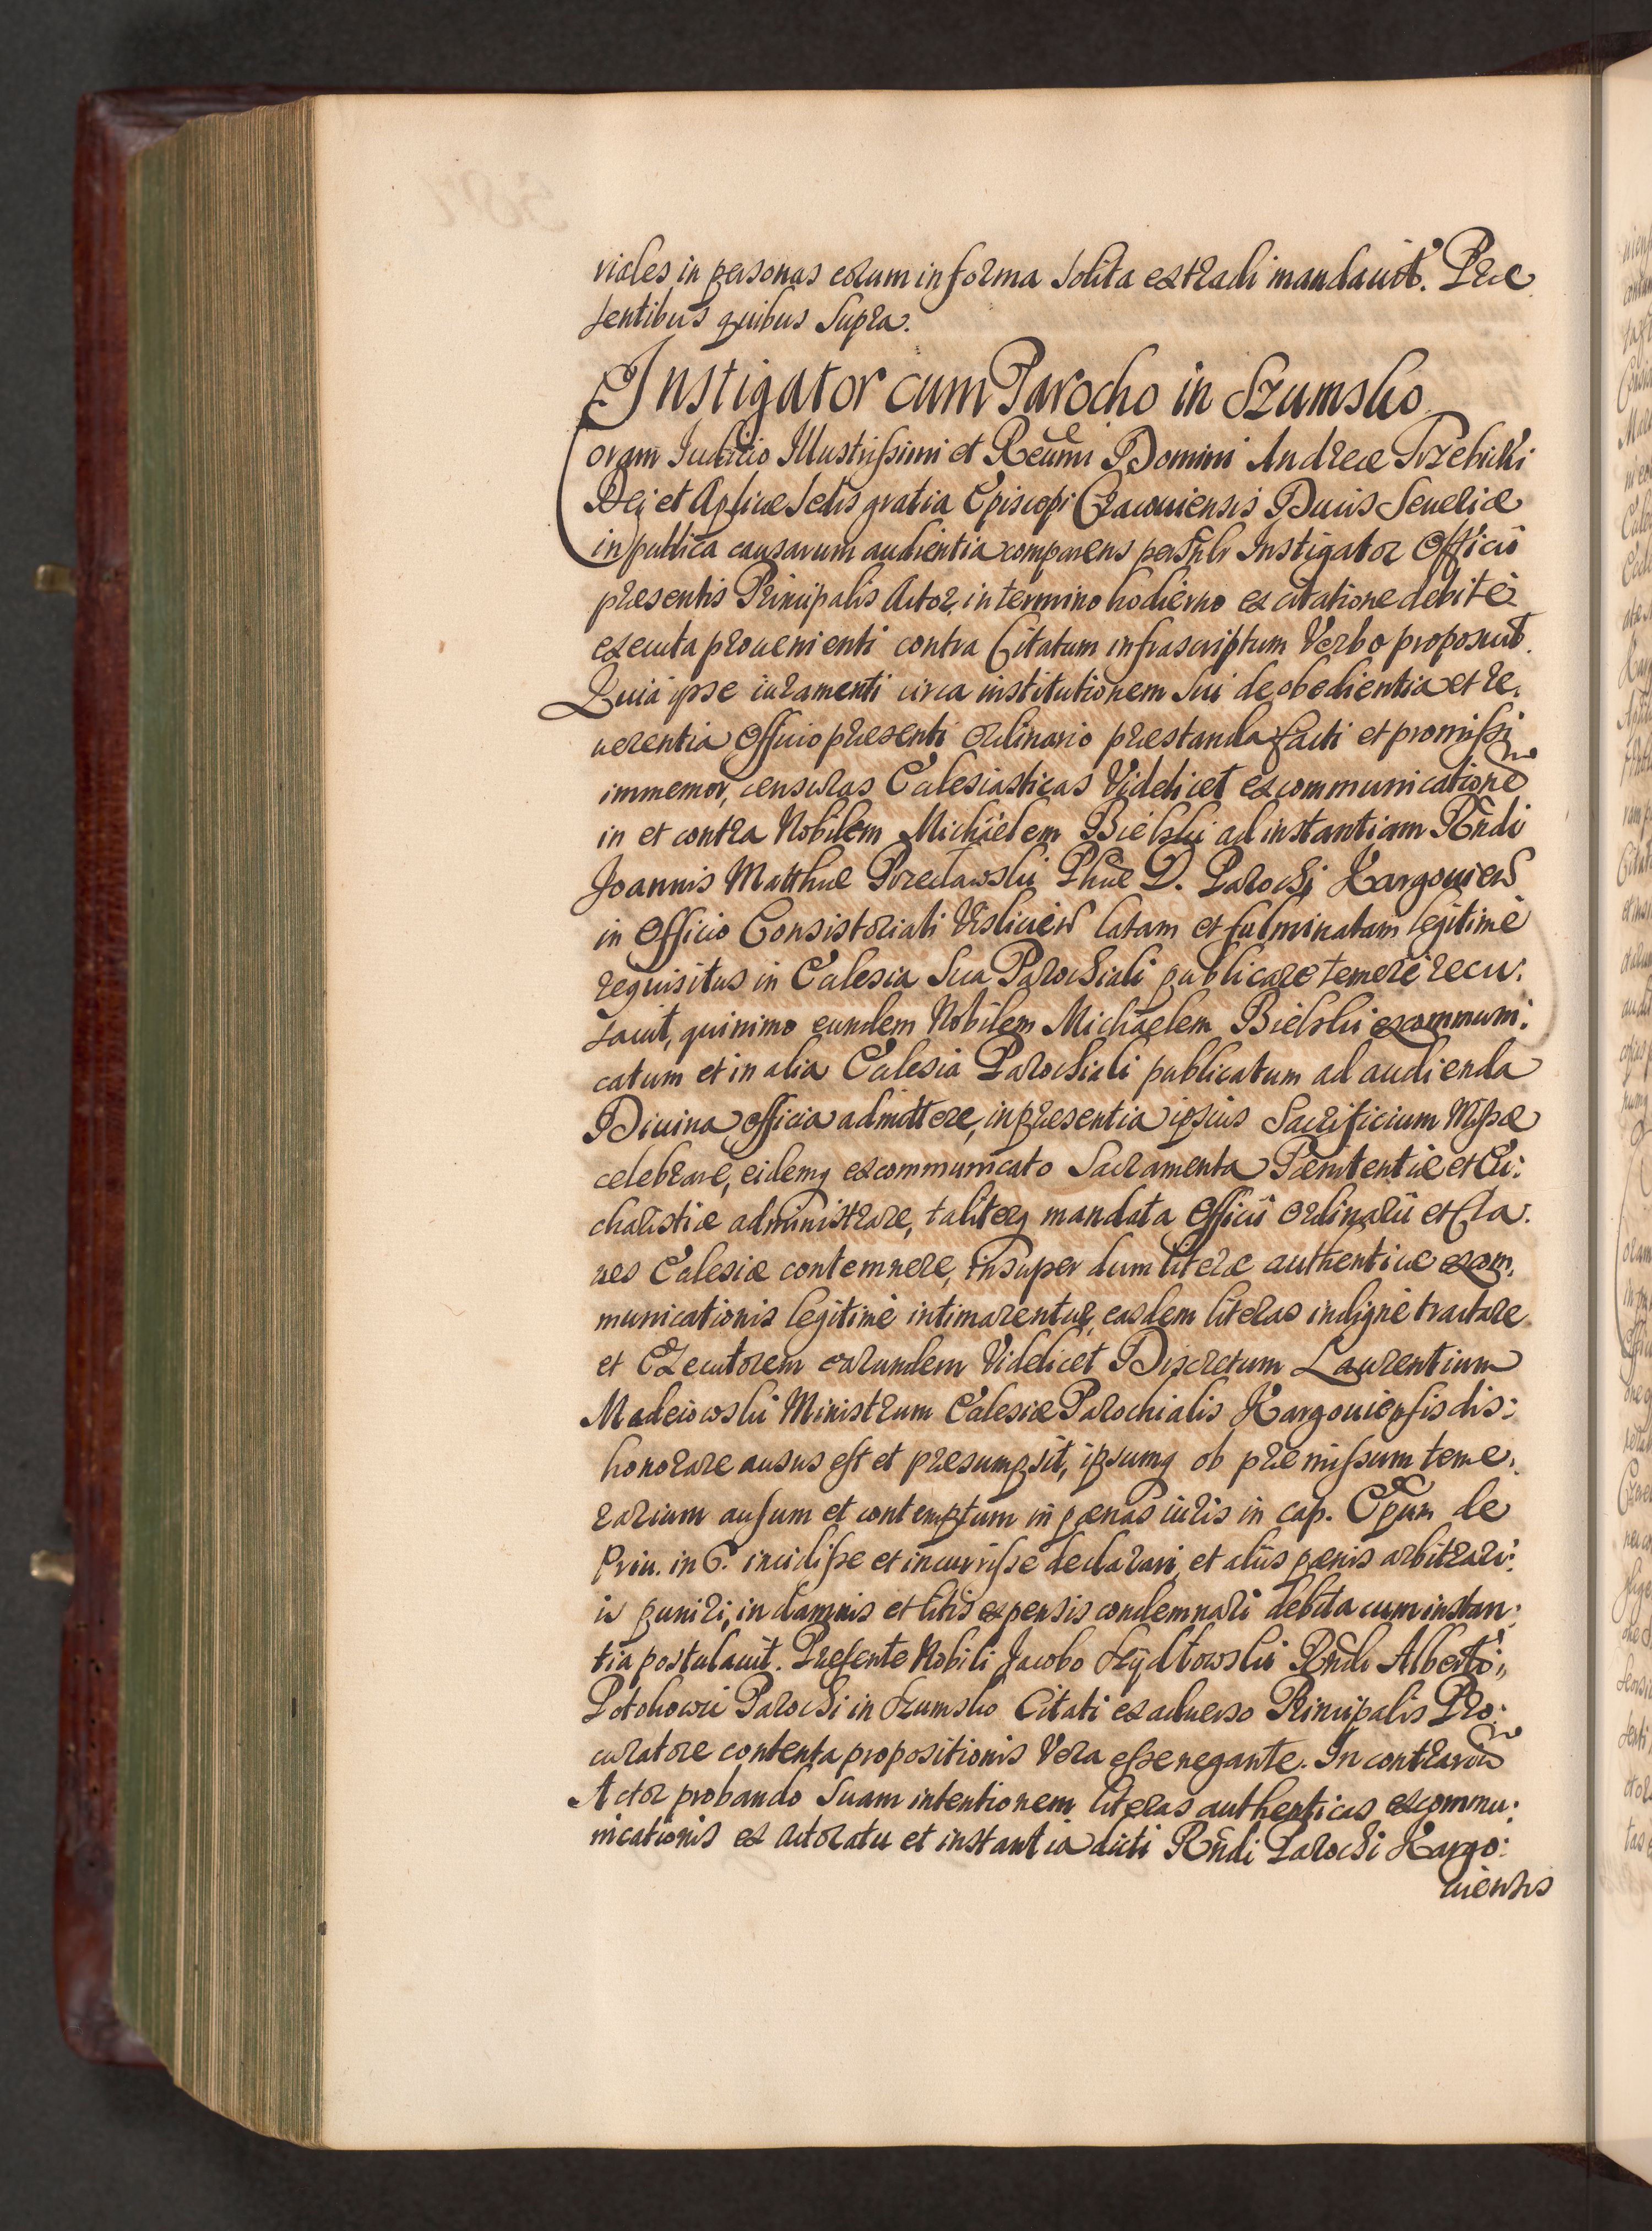 viales in personas eorum in forma solita extradi mandavit. Præ
sentibus quibus supra.
Instigator cum Parocho in Szumsko
Coram Judicio Illustrissimi et Rēumi Domini Andreæ Trzebicki
Dei et Aplicæ Sedis gratia Episcopi Cracouiensis Ducis Seueriæ
in publica causarum audientia comparens persnlr Instigator Officii
præsentis Principalis Actor, in termino hodierno ex citatione debitè
executa prouenienti contra Citatum infrascriptum Verbo proposuit.
Quia ipse iuramenti circa institutionem sui de obedientia et re,
uerentia Officio præsenti ordinario præstanda facti et promissi
immemor, censuras Ecclesiasticas Videlicet excommunicatione
in et contra Nobilem Michaelem Bielski ad instantiam Rndi
Joannis Matthiæ Przecławski Phiæ D. Parochi Kargouien
in Officio Consistoriali Vislicien latam et fulminatam legitimè
requisitus in Ecclesia sua Parochiali publicare temerè recu:
sauit, quinimo eundem Nobilem Michaelem Bielski excommuni:
catum et in alia Ecclesia Parochiali publicatum ad audienda
Diuina officia admittere, in præsentia ipsius Sacrificium Missæ
celebrare, eidemq excommunicato Sacramenta Pænitentiæ et Eu:
charistiæ administrare, taliterq mandata Officii Ordinarii et Cla.
ues Ecclesiæ contemnere, insuper dum literæ authenticæ excom,
municationis legitimè intimarentur, easdem literas indignè tractare
et Executorem earundem Videlicet Discretum Laurentium
Madeiowski Ministrum Ecclesiæ Parochialis Kargouiensis dis:
honorare ausus est et præsumpsit, ipsumq ob præmissum teme,
rarium ausum et contemptum in pænas iuris in cap. Epūm de
Priu. in 6. incidisse et incurrisse declarari, et aliis pænis arbitrari:
is puniri, in damnis et litis expensis condemnari debita cum instan:
tia postulauit. Præsente Nobili Jacobo Szydłowski Rndi Alberti,,
Potokowic Parochi in Szumsko Citati ex aduerso Principalis Pro:
curatore contenta propositionis Vera esse negante. In contrarium
Actor probando suam intentionem literas authenticas excommu:
nicationis ex actoratu et instantia dicti Rndi Parochi Kargo:
uiensis